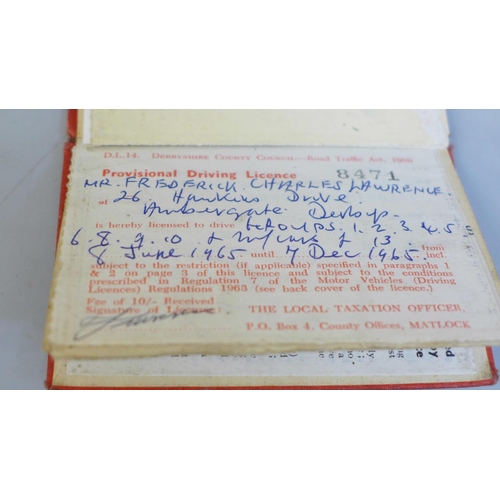 D.L.14. DERBYSHIRE COUNTY COUNCIL—Road Traffic Act, 1960
Provisional Driving Licence 8471
MR. FREDERICK CHARLES LAWRENCE
of 26 Hawkins Drive
Ambergate Derbys.
is hereby licensed to drive GROUPS. 1. 2. 3. 4. 5
6. 8. 9. 10 & 13. from
8 June 1965 until 7 Dec 1965. incl.
subject to the restriction (if applicable) specified in paragraphs 1
& 2 on page 3 of this licence and subject to the conditions
prescribed in Regulation 7 of the Motor Vehicles (Driving
Licences) Regulations 1963 (see back cover of the licence).
Fee of 10/- Received
Signature of Licensee: THE LOCAL TAXATION OFFICER,
P.O. Box 4, County Offices, MATLOCK